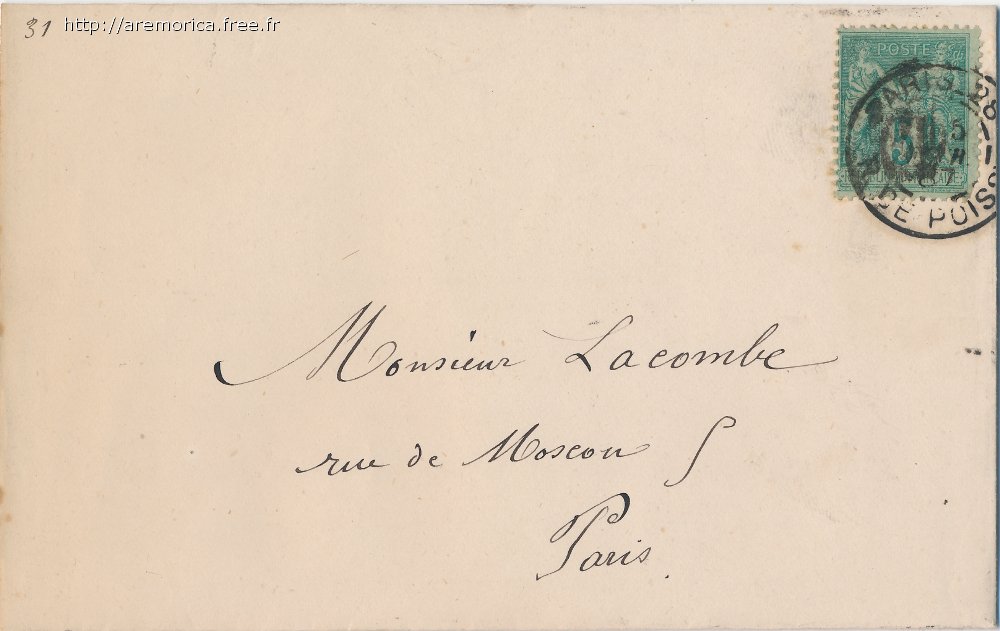 31 http://aremorica.free.fr
POSTE
PARIS 28
5
R. DE POISS
Monsieur Lacombe
rue de Moscou 5
Paris